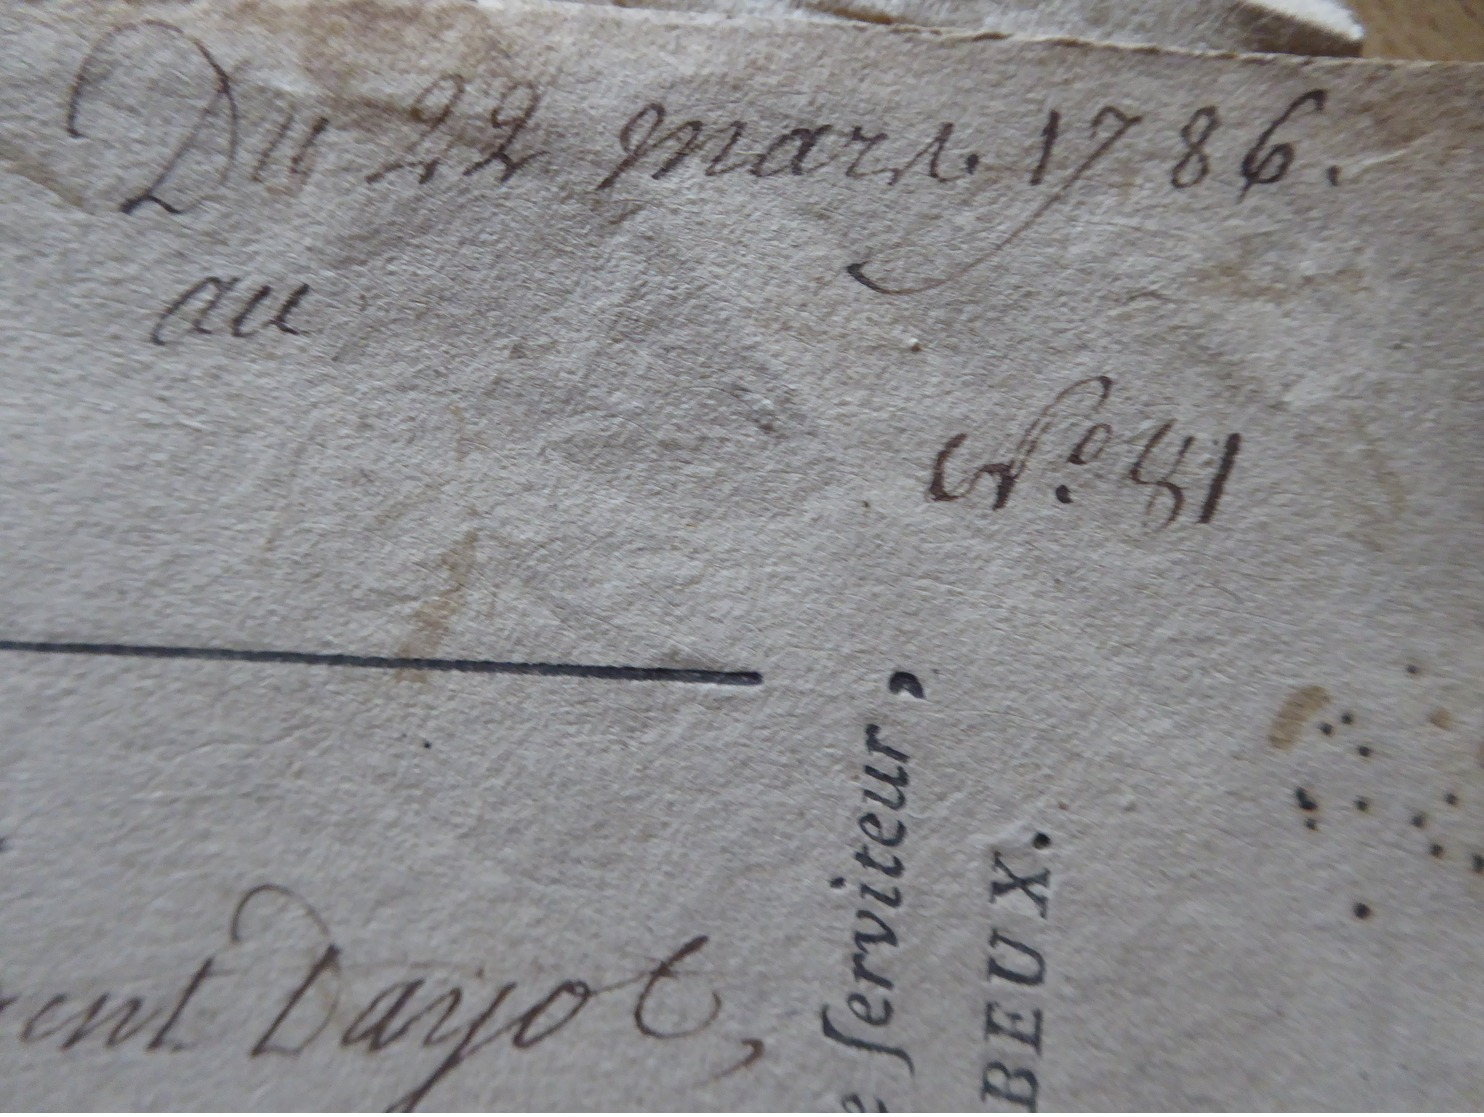 Du 22 mars. 1786.
au
N.º
Dayot,
ſerviteur,
BEUX.